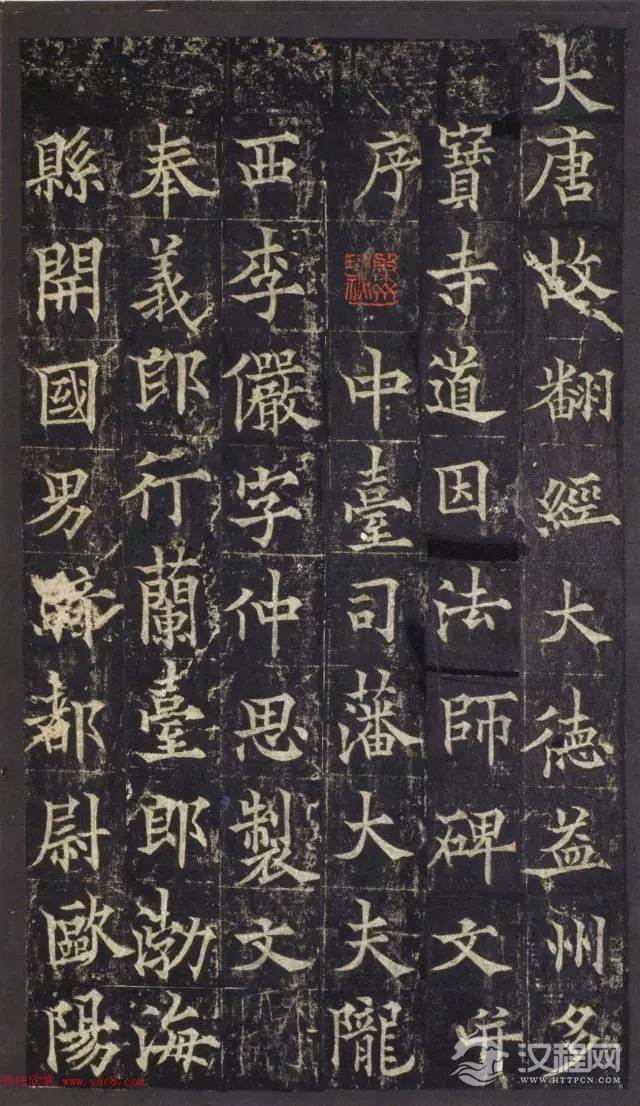 大唐故翻經大德益州多
寶寺道因法師碑文并
序
中臺司藩大夫隴
西李儼字仲思製文
奉義郎行蘭臺郎渤海
縣開國男騎都尉歐陽
汉程网
WWW.HTTPCN.COM
书法欣赏 www.yac8.com